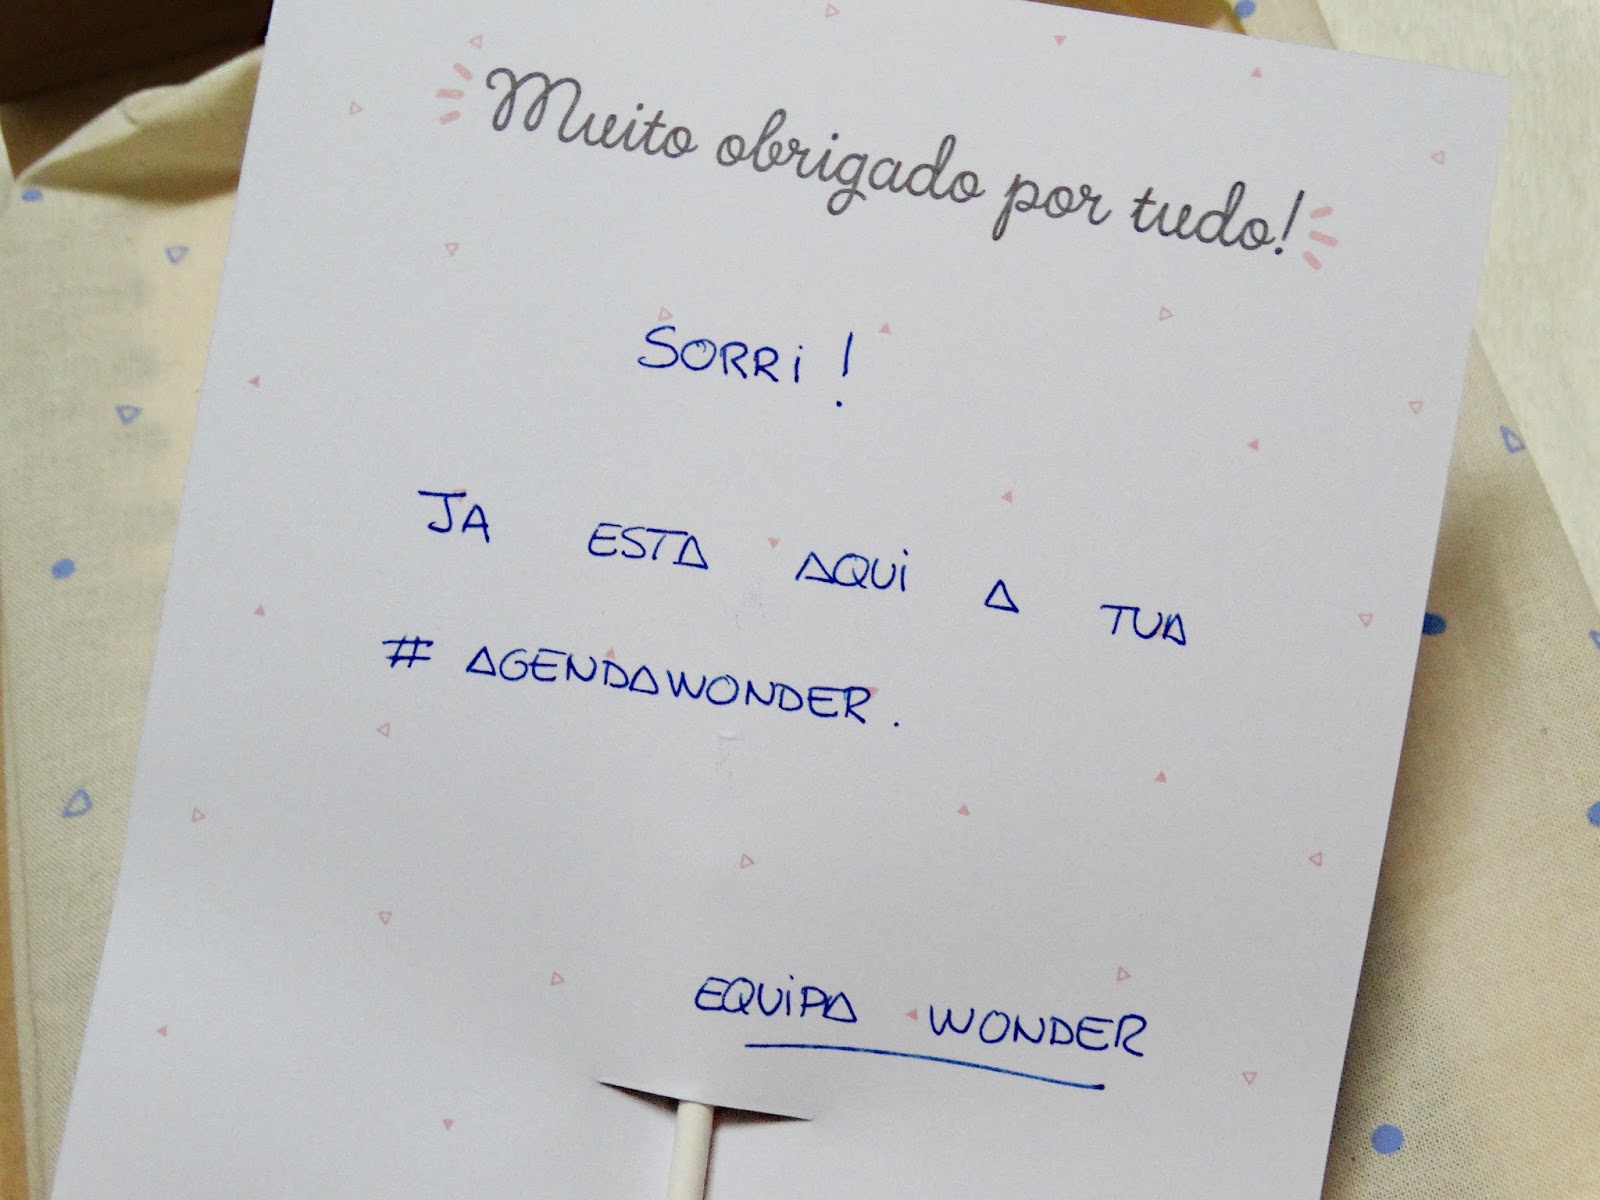 Muito obrigado por tudo!
SORRi !
JA ESTA AQUi A TUA
# AGENDAWONDER.
EQUiPA WONDER